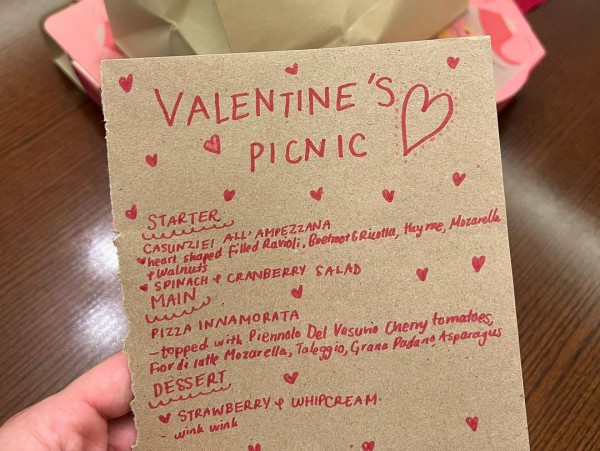 VALENTINE'S
PICNIC
STARTER
CASUNZIEI ALL'AMPEZZANA
heart shaped Filled Ravioli, Beetroot & Ricotta, thyme, Mozarella
& walnuts
SPINACH & CRANBERRY SALAD
MAIN
PIZZA INNAMORATA
- topped with Piennolo Del Vesuvio Cherry tomatoes,
Fior di latte Mozarella, Taleggio, Grana Padano Asparagus
DESSERT
STRAWBERRY & WHIPCREAM.
- wink wink